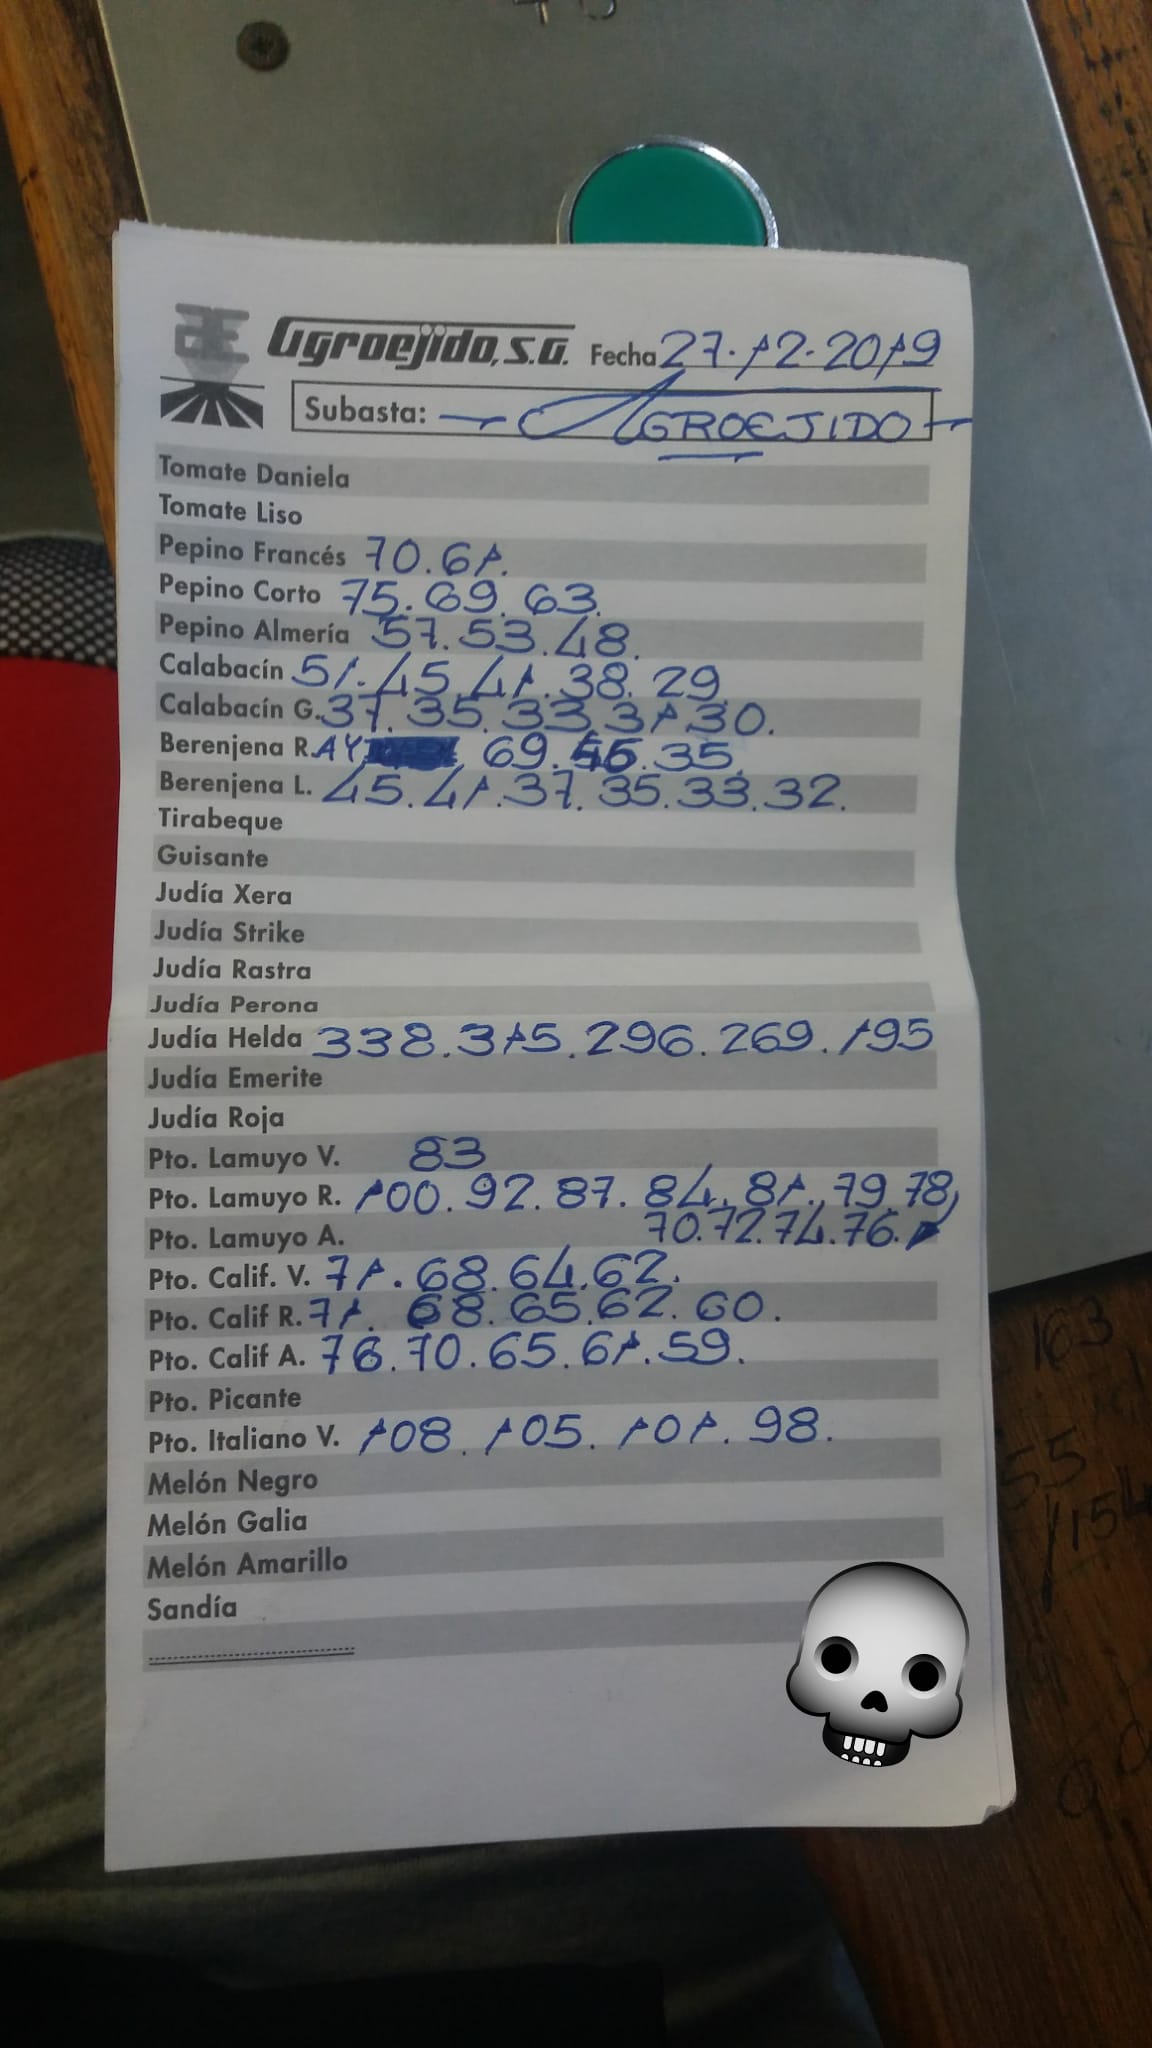 Agroejido, S.A. Fecha 27.12.2019
Subasta: AGROEJIDO
Tomate Daniela
Tomate Liso
Pepino Francés 70.61.
Pepino Corto 75.69.63.
Pepino Almería 57.53.48.
Calabacín 51.45.41.38.29
Calabacín G. 37.35.33.31.30.
Berenjena R.AY 69.46.35.
Berenjena L. 45.41.37.35.33.32.
Tirabeque
Guisante
Judía Xera
Judía Strike
Judía Rastra
Judía Perona
Judía Helda 338.315.296.269.195
Judía Emerite
Judía Roja
Pto. Lamuyo V. 83
Pto. Lamuyo R. 100.92.87.84.81.79.78,
70.72.74.76.
Pto. Lamuyo A.
Pto. Calif. V. 71.68.64.62.
Pto. Calif R. 71.68.65.62.60.
Pto. Calif A. 76.70.65.61.59.
Pto. Picante
Pto. Italiano V. 108.105.101.98.
Melón Negro
Melón Galia
Melón Amarillo
Sandía
163
55
/154